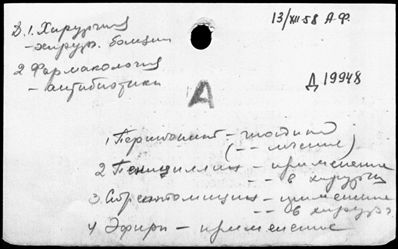 13/XII-58 А.Ф.
Д.1. Хирургия
- хирург. болезни
2 Фармакология
- антибиотики
Д 19948
А
1 Перитонит - гнойный
(-- лечение)
2 Пенициллин - применение
-- в хирургии
3 Стрептомицин - применение
-- в хирургии
4 Эфиры - применение